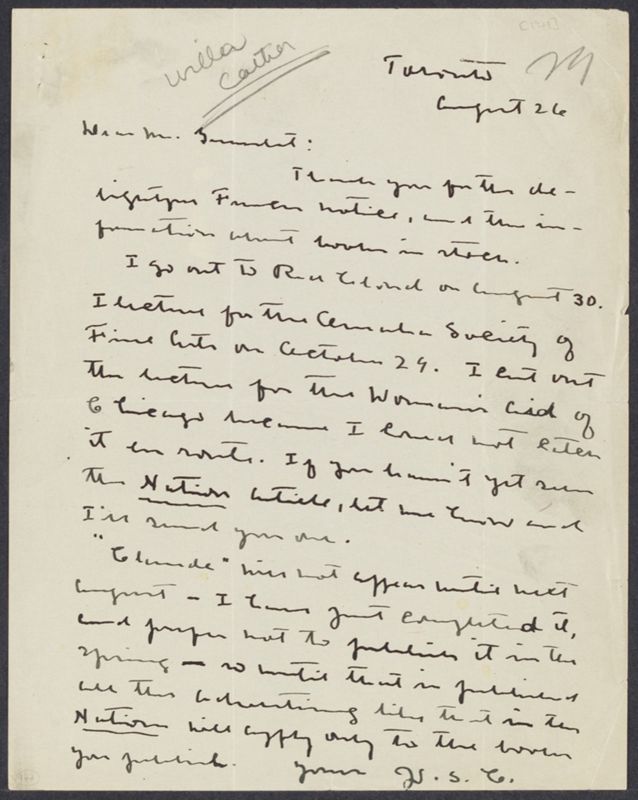 Willa
Cather
Toronto
August 26
Dear Mr. Greenslet:
Thank you for the de-
lightful French notice, and the in-
formation about books in stock.
I go out to Red Cloud on August 30.
I lecture for the Omaha Society of
Fine Arts on October 29. I cut out
the lecture for the Woman's Aid of
Chicago because I could not catch
it en route. If you haven't yet seen
the Nation article, let me know and
I'll send you one.
"Claude" will not appear until next
August - I have just completed it,
and prefer not to publish it in the
spring - so until that is published
all the advertising like that in the
Nation will apply only to the books
you publish. Yours W. S. C.